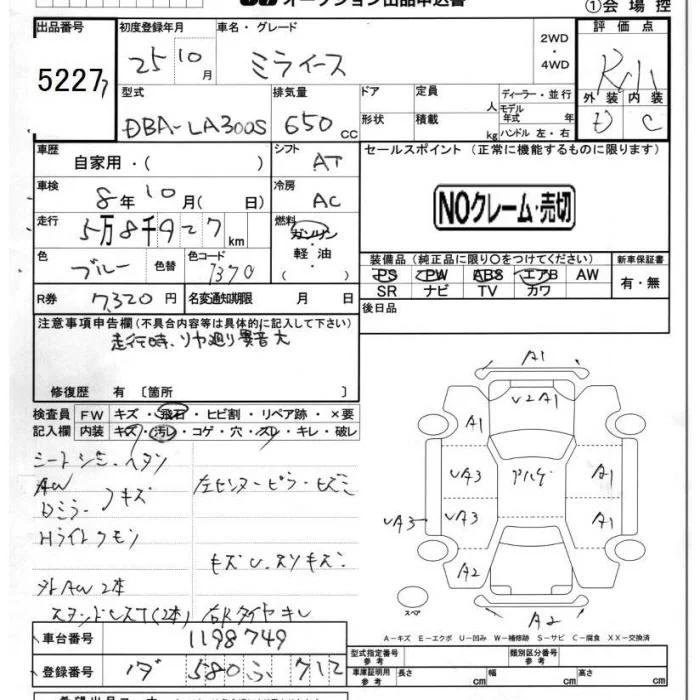 オークション出品申込書
①会場控
出品番号 初度登録年月 車名・グレード 2WD・4WD 評価点
52277 25 10月 ミライース
型式 排気量 ドア 定員 人 ディーラー・並行 外装 内装
モデル年式 年
DBA-LA300S 650cc 形状 積載 kg ハンドル 左・右 D C
車歴 自家用・( ) シフト AT セールスポイント (正常に機能するものに限ります)
車検 8年10月( 日) 冷房 AC NOクレーム・売切
走行 5万8千9 27km 燃料 ガソリン・軽油・( )
色 ブルー 色替 色コード 装備品(純正品に限り○をつけてください) 新車保証書
PS PW ABS エアB AW 有・無
SR ナビ TV カワ
R券 7,320円 名変通知期限 月 日 後日品
注意事項申告欄(不具合内容等は具体的に記入して下さい)
走行時、リヤ廻り異音大
修復歴 有〔箇所 〕
検査員 FW キズ・飛石・ヒビ割・リペア跡・×要
記入欄 内装 キズ・汚レ・コゲ・穴・スレ・キレ・破レ
A1
V2A1
A1
シートシミ・ヘタリ
AW
Dミラー キズ
左センターピラーヒズミ
UA3 A1
UA3 UA3 A1
Hライトクモリ
キズU、スリキズ
A2
外AW2本
スタッドレスT(2本) 右Rタイヤキレ
スペア
A2
A-キズ E-エクボ U-凹み W-補修跡 S-サビ C-腐食 XX-交換済
車台番号 1198749 型式指定番号 参考 類別区分番号 参考
登録番号 580 ふ 712 車庫証明用 参考 長さ cm 幅 cm 高さ cm